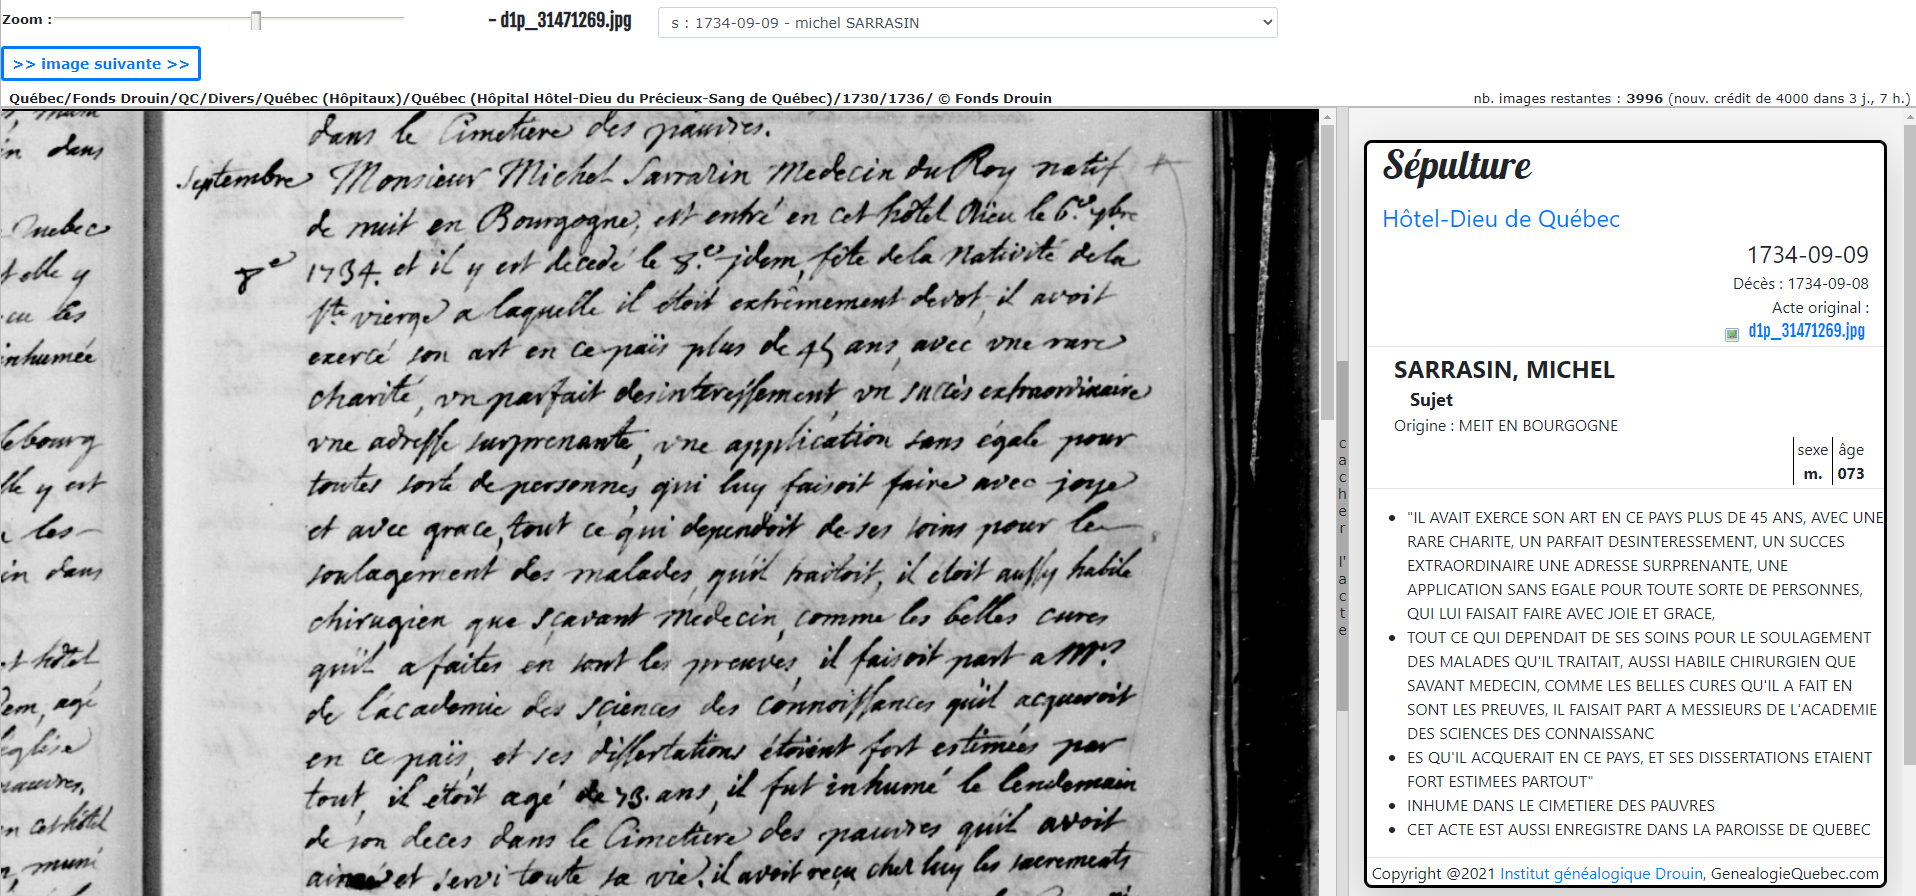 Zoom :
- d1p_31471269.jpg
s : 1734-09-09 - michel SARRASIN
>> image suivante >>
Québec/Fonds Drouin/QC/Divers/Québec (Hôpitaux)/Québec (Hôpital Hôtel-Dieu du Précieux-Sang de Québec)/1730/1736/ © Fonds Drouin
nb. images restantes : 3996 (nouv. crédit de 4000 dans 3 j., 7 h.)
in dans
Quebec
t elle y
inhumée
lebourg
lle y est
les
in dans
t hôtel
dem, agé
église
pauvres,
n cet hôtel
muni
dans le Cimetiere des pauvres.
Septembre
8e
Monsieur Michel Sarrazin Medecin du Roy natif
de nuit en Bourgogne, est entré en cet hôtel Dieu le 6.e 7bre
1734. et il y est decedé le 8.e jdem, fête de la Nativité de la
ste vierge a laquelle il étoit extrêmement devot, il avoit
exercé son art en ce païs plus de 45 ans, avec vne rare
charité, vn parfait desinteressement, vn succès extraordinaire
vne adresse surprenante, vne application sans égale pour
toutes sorte de personnes, qui luy faisoit faire avec joye
et avec grace, tout ce qui dependoit de ses soins pour le
soulagement des malades, qu'il traitoit, il étoit aussy habile
chirugien que sçavant Medecin, comme les belles cures
qu'il a faites en sont les preuves, il faisoit part a Mrs
de l'academie des sciences des connoissances qu'il acqueroit
en ce païs, et ses dissertations étoient fort estimées par
tout, il étoit agé de 73. ans, il fut inhumé le lendemain
de son deces dans le Cimetiere des pauvres qu'il avoit
aimé et servi toute sa vie. il avoit reçu chez luy les sacrements
cacher l'acte
Sépulture
Hôtel-Dieu de Québec
1734-09-09
Décès : 1734-09-08
Acte original :
d1p_31471269.jpg
SARRASIN, MICHEL
Sujet
Origine : MEIT EN BOURGOGNE
sexe âge
m. 073
• "IL AVAIT EXERCE SON ART EN CE PAYS PLUS DE 45 ANS, AVEC UNE
RARE CHARITE, UN PARFAIT DESINTERESSEMENT, UN SUCCES
EXTRAORDINAIRE UNE ADRESSE SURPRENANTE, UNE
APPLICATION SANS EGALE POUR TOUTE SORTE DE PERSONNES,
QUI LUI FAISAIT FAIRE AVEC JOIE ET GRACE,
• TOUT CE QUI DEPENDAIT DE SES SOINS POUR LE SOULAGEMENT
DES MALADES QU'IL TRAITAIT, AUSSI HABILE CHIRURGIEN QUE
SAVANT MEDECIN, COMME LES BELLES CURES QU'IL A FAIT EN
SONT LES PREUVES, IL FAISAIT PART A MESSIEURS DE L'ACADEMIE
DES SCIENCES DES CONNAISSANC
• ES QU'IL ACQUERAIT EN CE PAYS, ET SES DISSERTATIONS ETAIENT
FORT ESTIMEES PARTOUT"
• INHUME DANS LE CIMETIERE DES PAUVRES
• CET ACTE EST AUSSI ENREGISTRE DANS LA PAROISSE DE QUEBEC
Copyright @2021 Institut généalogique Drouin, GenealogieQuebec.com